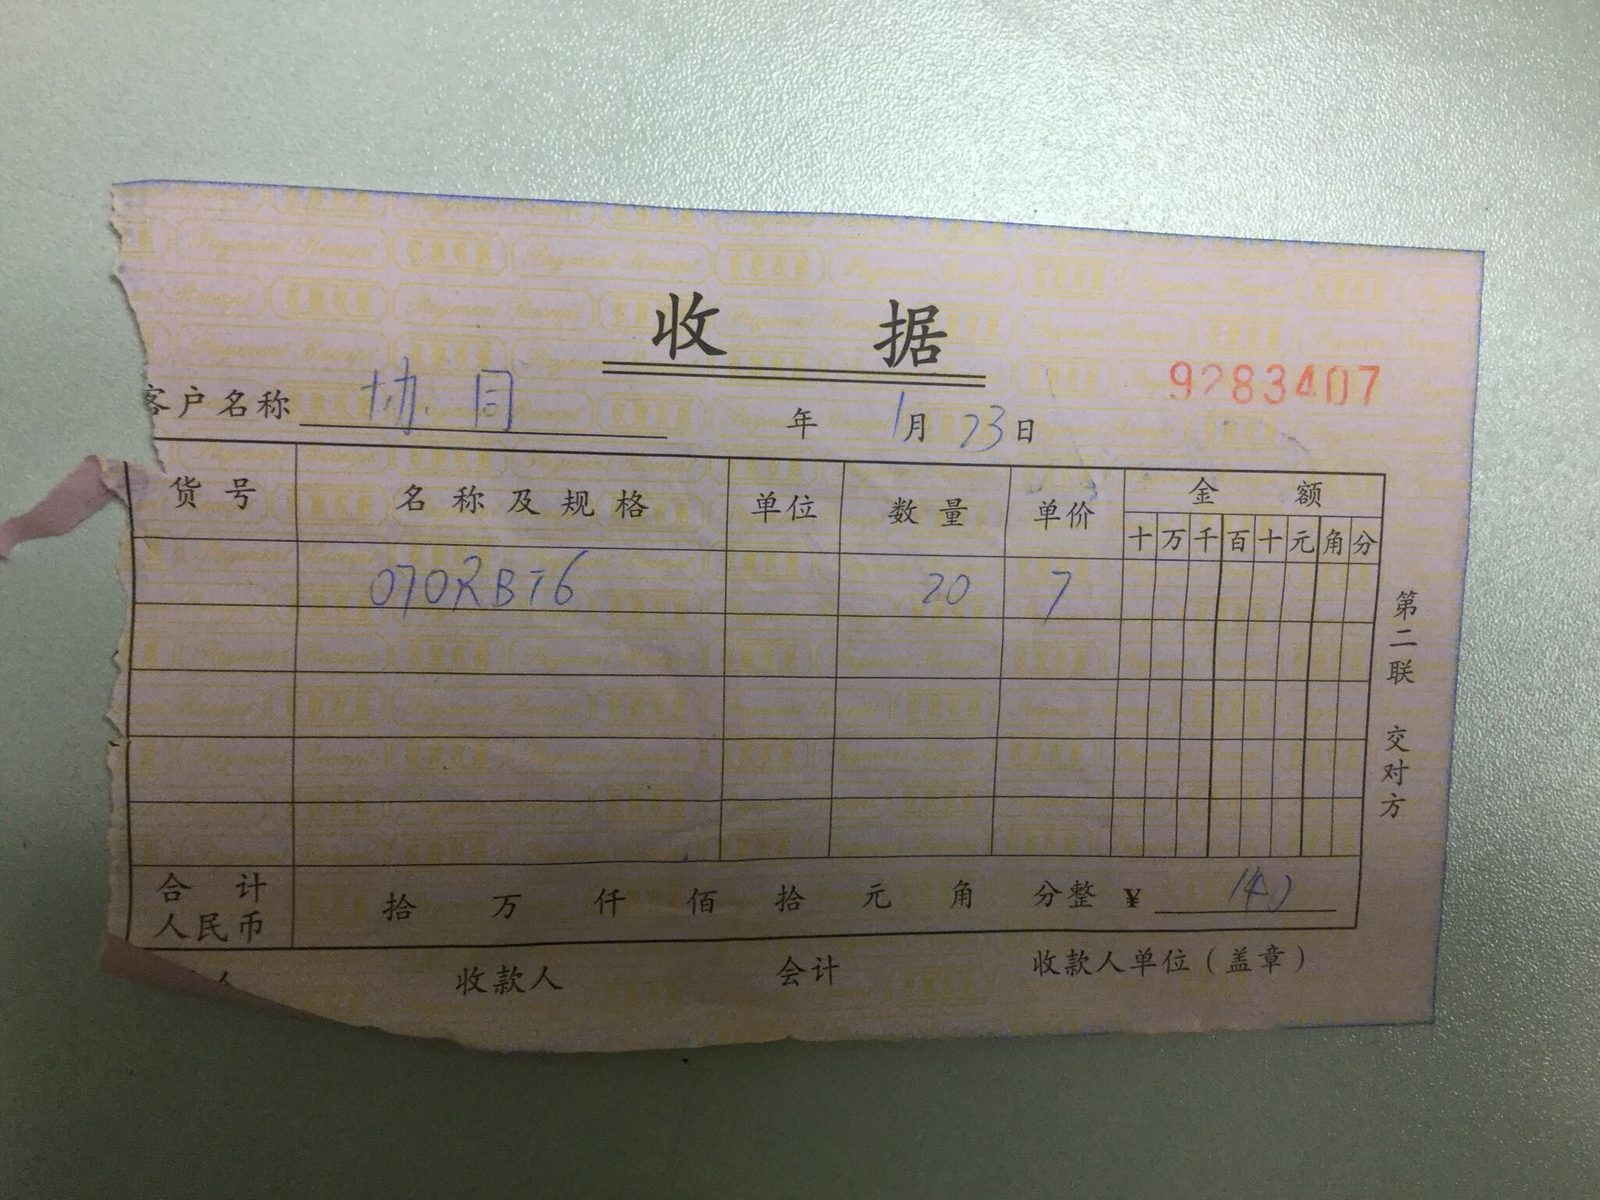 收 据
9283407
客户名称 协同 年 1月23日
货号 名称及规格 单位 数量 单价 金额
十 万 千 百 十 元 角 分
070RBT6 20 7
合计人民币 拾 万 仟 佰 拾 元 角 分整 ¥ 140
人 收款人 会计 收款人单位(盖章)
第二联 交对方